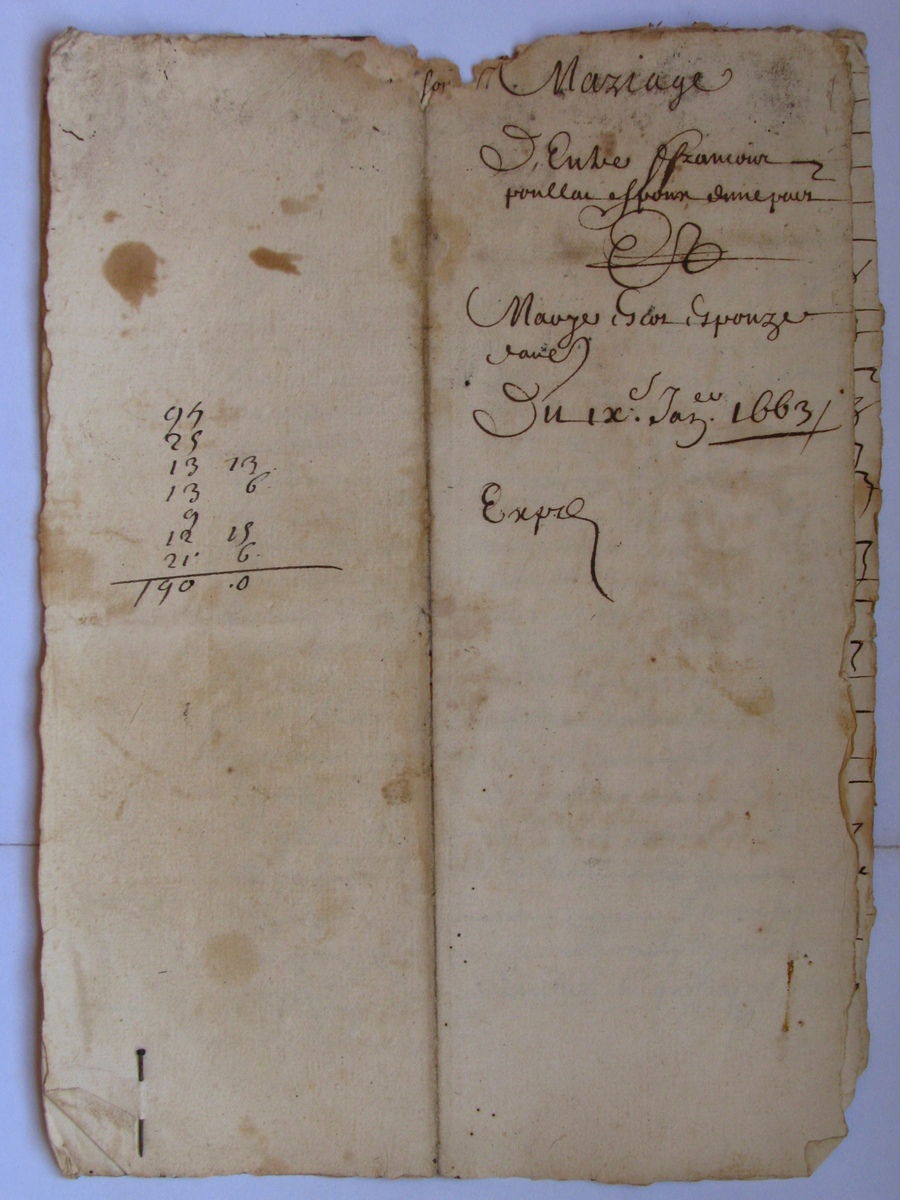 95
25
13 13
13 6
9
12 15
21 6
190 .0
Mariage
D'Entre ffrancois
poullac espoux dune part
Et
Marye Escot Espouze
dau
Du ixe. Janer. 1663
Expe